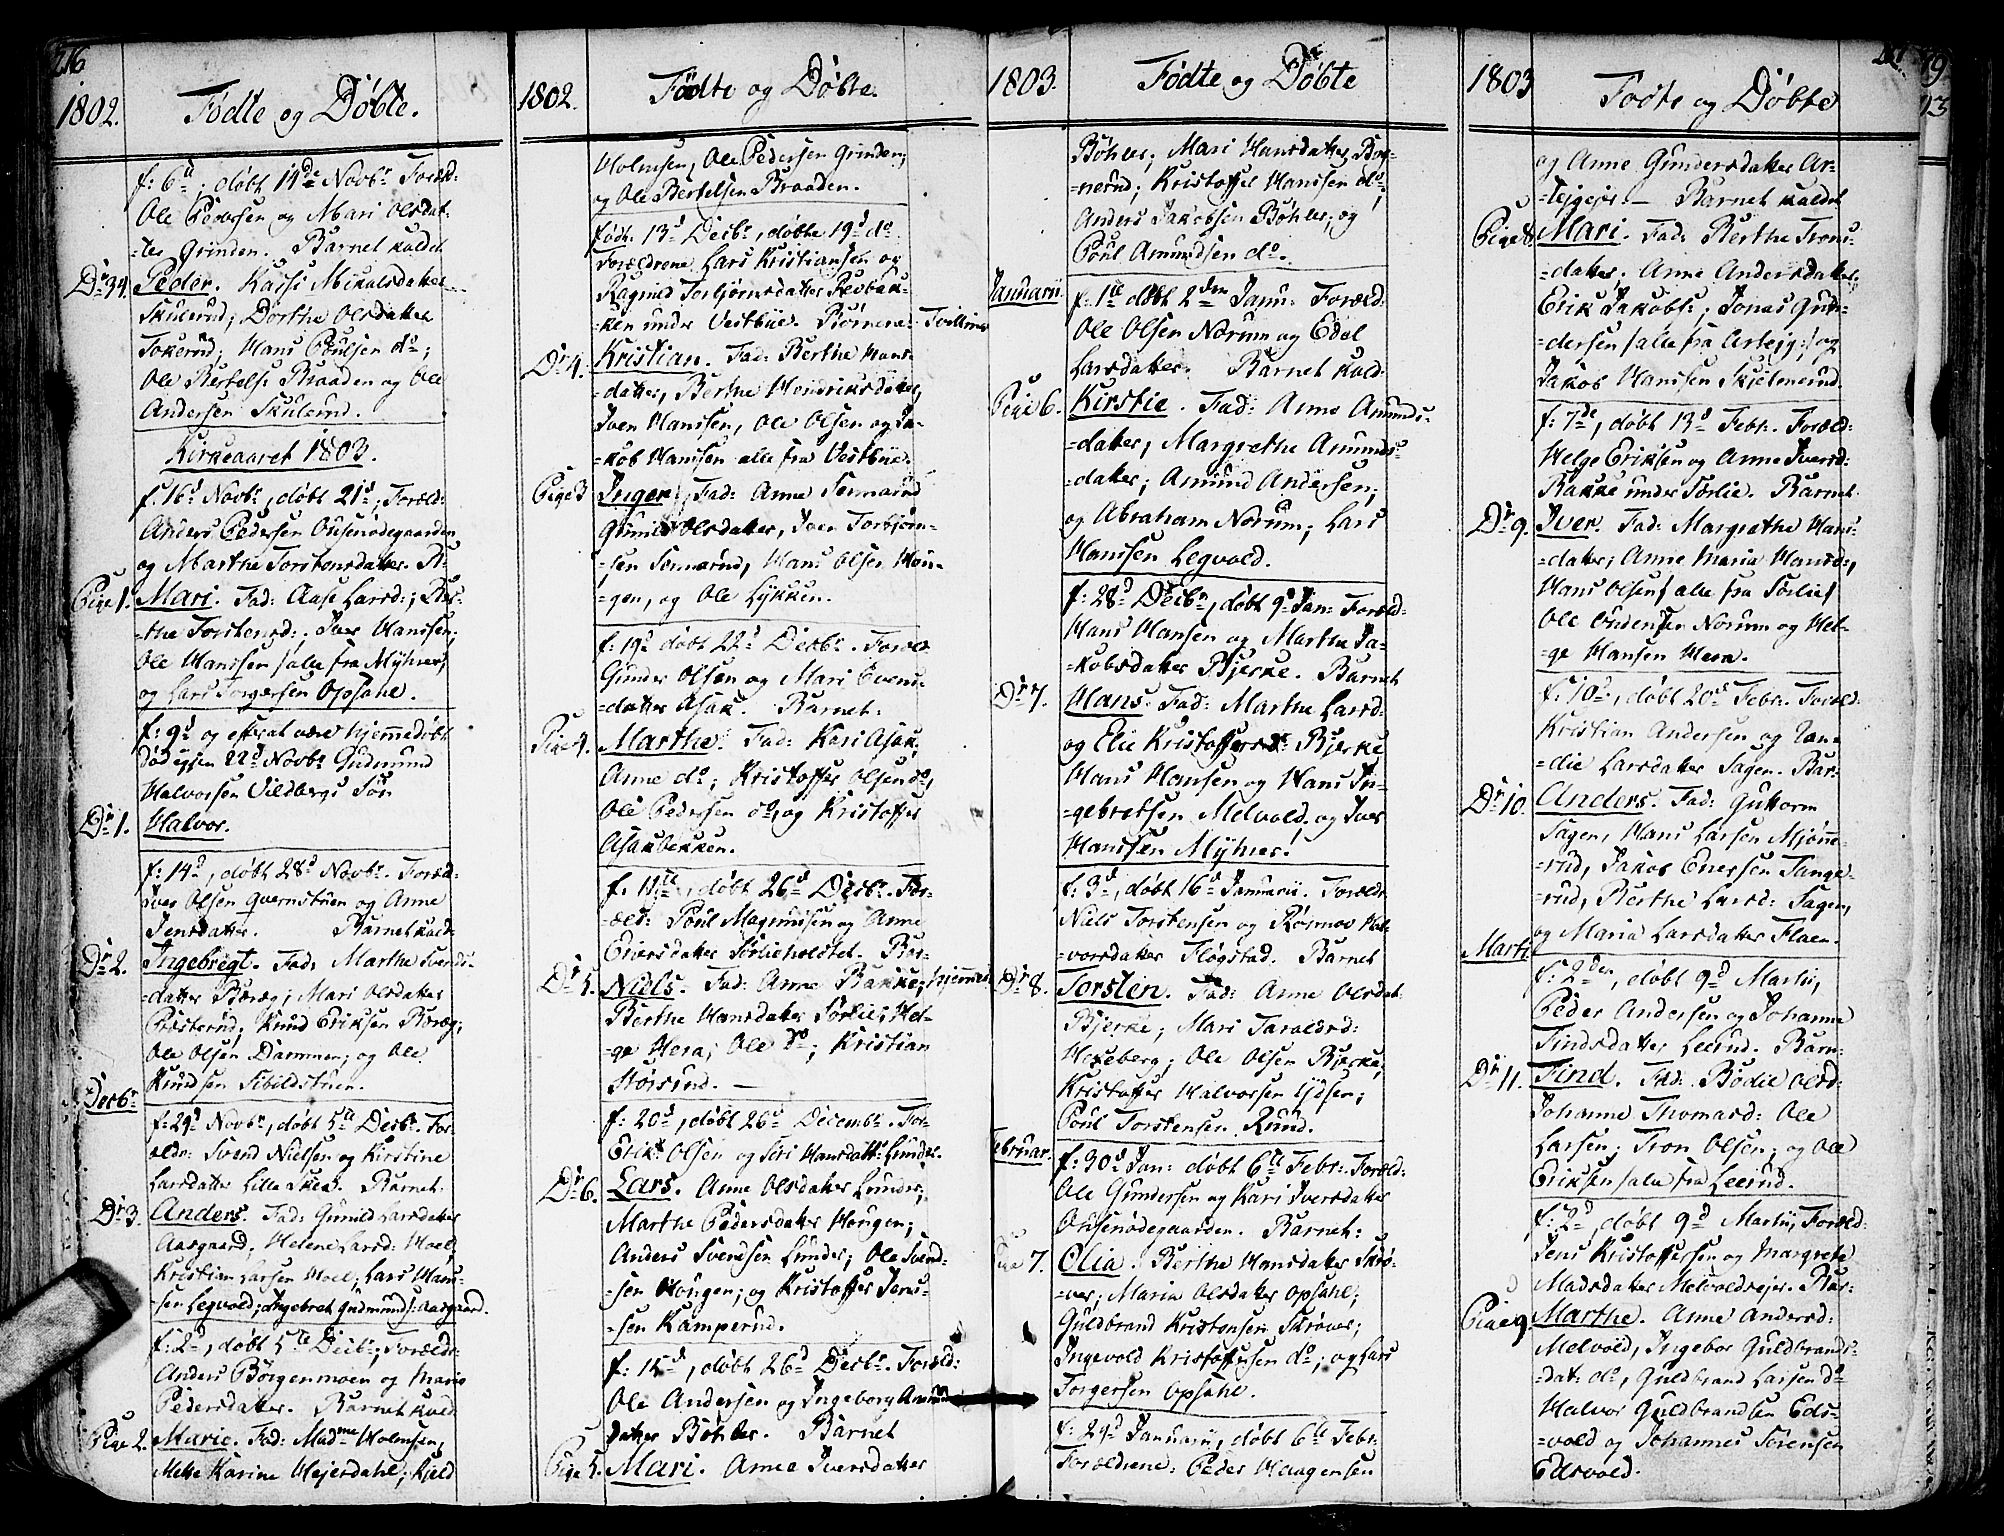 216
1802.
Fødte og Døbte.
f: 6d, døbt 14de Novbr Foræld:
Ole Pedersen og Mari Olsdat-
ter Grinden. Barnet kaldet
Dr 34. Peder. Karsi Mikalsdatter
Skulerud; Dorthe Olsdatter
Tokerud; Hans Poulsen do;
Ole Bertelse Braaden og Ole
Andersen Skulerud.
Kirkeaaret 1803.
f: 16d Novbr, døbt 21d, Foræld:
Anders Pedersen Ousenødegaarden
og Marthe Torstensdatter. B:
Pige 1. Mari. Fad: Aase Larsd:; Ber-
=the Torstensd:; Iver Hanssen;
Ole Hanssen /alle fra Myhrer/
og Lars Torgersen Opsahl.
f: 9d og efter at være hjemmedøbt
død igjen 22d Novbr Gudmund
Halvorsen Vildbergs Søn
Dr 1. Halvor.
f: 14d, døbt 28d Novbr. Foræld:
Iver Olsen Qvernstuen og Anne
Jensdatter. Barnet kald:
Dr 2. Ingebregt. Fad: Marthe Svends-
datter Boræg; Mari Olsdatter
Præsterud; Knud Eriksen Boræg;
Ole Olsen Dammen; og Ole
Knudsen Sibildstuen.
Decbr
f: 29d Novbr, døbt 5te Decbr. For-
ældr: Svend Nielsen og Kirstine
Larsdatter Lille Skea. Barnet
Dr 3. Anders. Fad: Gunild Larsdatter
Aasgaard, Helene Larsd: Moel;
Kristian Larsen Moel; Lars Han-
=sen Legvold; Ingebret Gudmunds: Aasgaard.
f: 2d, døbt 5te Decbr; Forældr:
Anders Børgenmoen og Marie
Pedersdatter. Barnet kald
Pige 2. Marie. Fad: Madme Holmsen,
Mette Karine Mejerdahl; Kield
1802.
Fødte og Døbte.
Holmsen; Ole Pedersen Grinden;
og Ole Bertelsen Braaden.
født: 13d Decbr, døbte 19d do.
Forældrene Lars Kristiansen og
Ragnild Torbjørnsdatter Revbak-
=ken under Vestbye. Børnene Tvillinger
Dr 4. Kristian. Fad: Berthe Hans-
datter, Berthe Hendriksdatter,
Iven Hanssen, Ole Olsen og Ja-
=kob Hanssen alle fra Vestbye.
Pige 3 Inger; Fad: Anne Sennerud
Gunild Olsdatter, Iver Torbjørn-
=sen Sennerud, Hans Olsen Hou-
=gen, og Ole Lykken.
f: 19d døbt 22d Decbr. Foræld
Gunder Olsen og Mari Evens-
=datter Asak. Barnet:
Pige 4. Marthe. Fad: Kari Asak,
Anne do; Kristoffer Olsen do;
Ole Pedersen do, og Kristoffer
Asakbekken.
f: 11te, døbt 26d Decbr. For-
=æld: Poul Magnusen og Anne
Enersdatter Sørlieholdtet. Bar-
Dr 5. Niels. Fad: Anne Bakke; hjemmed:
Berthe Hansdatter Sørlie; Hel-
=ge Hera; Ole do; Kristian
Størsrud. —
f: 20d, døbt 26d Decembr. For-
Erik Olsen og Siri Hansdattr Lunder.
Dr 6. Lars. Anne Olsdatter Lunder,
Marthe Pedersdatter Hougen;
Anders Svendsen Lunder; Ole Svend-
=sen Hougen; og Kristoffer Jens-
=sen Kamperud.
f: 15d, døbt 26d Decbr. Foræld:
Ole Andersen og Ingeborg Amund
datter Bøhler. Barnet
Pige 5. Mari. Anne Iversdatter
1803.
Fødte og Døbte
Bøhler; Mari Hansdatter Bor-
=nerud; Kristoffer Hanssen do;
Anders Jakobsen Bøhler, og
Poul Amundsen do.
Januarii
f: 1te døbt 2den Janu: Foræld:
Ole Olsen Norum og Edel
Larsdatter. Barnet kald:
Pige 6. Kirstie. Fad: Anne Amunds-
=datter; Margrethe Amunds-
=datter; Amund Andersen;
og Abraham Norum; Lars
Hanssen Legvold.
f: 28d Decbr, døbt 9d Jan: Foræld:
Hans Hansen og Marthe Ja-
=kobsdatter Bjerke. Barnet
Dr 7. Hans. Fad: Marthe Larsd:
og Elie Kristoffersd: Bjerke
Hans Hansen og Hans In-
=gebretsen Melvold, og Iver
Hanssen Myhrer.
f: 3d, døbt 16d Januarii. Foræld:
Niels Torstensen og Rosmor Hal-
=vorsdatter Flogstad. Barnet
Dr 8. Torsten. Fad: Anne Olsdat:
Bjerke; Mari Taraldsd:
Hexeberg; Ole Olsen Bjerke;
Kristoffer Halvorsen Lydsen;
Poul Torstensen Rund.
Februar.
f: 30d Jan: døbt 6te Febr: Foræld:
Ole Gundersen og Kari Iversdatter
Ousenødegaarden. Barnet:
Pige 7. Olia. Berthe Hansdatter Skrø-
=ver; Maria Olsdatter Opsahl;
Guldbrand Kristensen Skrøver;
Ingevold Kristoffersen do; og Lars
Torgersen Opsahl.
f: 29d Januarii, døbt 6te Febr:
Forældrene: Peder Haagensen
1803
Fødte og Døbte
217
og Anne Gundersdatter Ar-
=tejgejer. — Barnet kaldet
Pige 8. Mari. Fad: Berthe Trons-
=datter; Anne Andersdatter;
Erik Jakobs:; Jonas Gun-
=dersen /alle fra Artejg:/ og
Jakob Hanssen Skjelnerud.
f: 7de, døbt 13d Febr. Foræld:
Helge Eriksen og Anne Iversd:
Bakke under Sørlie. Barnet
Dr 9. Iver. Fad: Margrethe Hans-
=datter; Anne Maria Hansd:,
Hans Olsen/ alle fra Sørlie/
Ole Endersen Norum og Hel-
ge Hansen Hera.
f: 10d, døbt 20d Febr. Foræld:
Kristian Andersen og Ran-
=die Larsdatter Sagen. Bar-
Dr 10. Anders. Fad: Guttorm
Sagen, Hans Larsen Mjønne-
=rud, Jakob Enersen Tange-
=rud, Berthe Larsd: Sagen,
og Maria Larsdatter Flaen.
Martii
f: 2den, døbt 9d Martii,
Peder Andersen og Johanne
Findsdatter Leerud. Barn-
Dr 11. Find. Fad: Bodie Olsd:
Johanne Thomasd: Ole
Larsen; Tron Olsen; og Ole
Eriksen /alle fra Leerud.
f: 2d, døbt 9d Martii, Foræld:
Jens Kristoffersen og Margrete
Madsdatter Melvoldsejer. Bar-
Pige 9. Marthe. Anne Andersd:
Melvold, Ingebor Guldbrands-
=dat: do, Guldbrand Larsen do
Halvor Guldbrandsen Eds-
=vold og Johannes Sørensen
Edsvold.